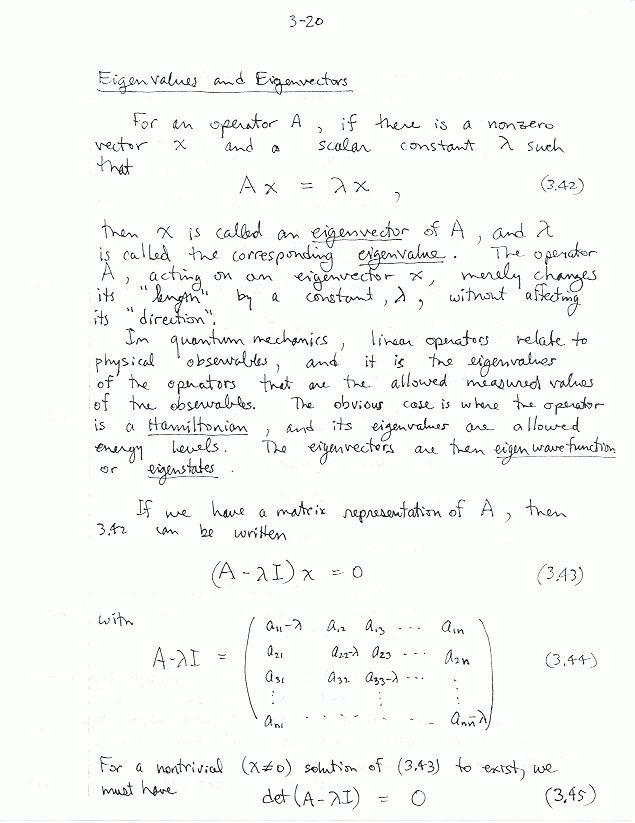 3-20
Eigenvalues and Eigenvectors
For an operator A, if there is a nonzero
vector x and a scalar constant λ such
that
A x = λ x , (3.42)
then x is called an eigenvector of A, and λ
is called the corresponding eigenvalue. The operator
A, acting on an eigenvector x, merely changes
its "length" by a constant, λ, without affecting
its "direction".
In quantum mechanics, linear operators relate to
physical observables, and it is the eigenvalues
of the operators that are the allowed measured values
of the observables. The obvious case is where the operator
is a Hamiltonian, and its eigenvalues are allowed
energy levels. The eigenvectors are then eigen wave function
or eigenstates.
If we have a matrix representation of A, then
3.42 can be written
(A - λI) x = 0 (3.43)
with
a₁₁-λ a₁₂ a₁₃ ... a₁ₙ
a₂₁ a₂₂-λ a₂₃ ... a₂ₙ
A-λI = (3.44)
a₃₁ a₃₂ a₃₃-λ ... ⋮
⋮ ⋮ ⋮
aₙ₁ . . . . . . . aₙₙ-λ
For a nontrivial (x≠0) solution of (3.43) to exist, we
must have det(A-λI) = 0 (3.45)